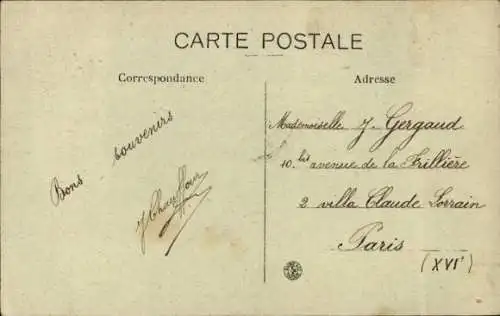 CARTE POSTALE
Correspondance
Adresse
Bons souvenirs
Mademoiselle J. Gergaud
10.bis avenue de la Frillière
2 villa Claude Lorrain
Paris
(XVIe)